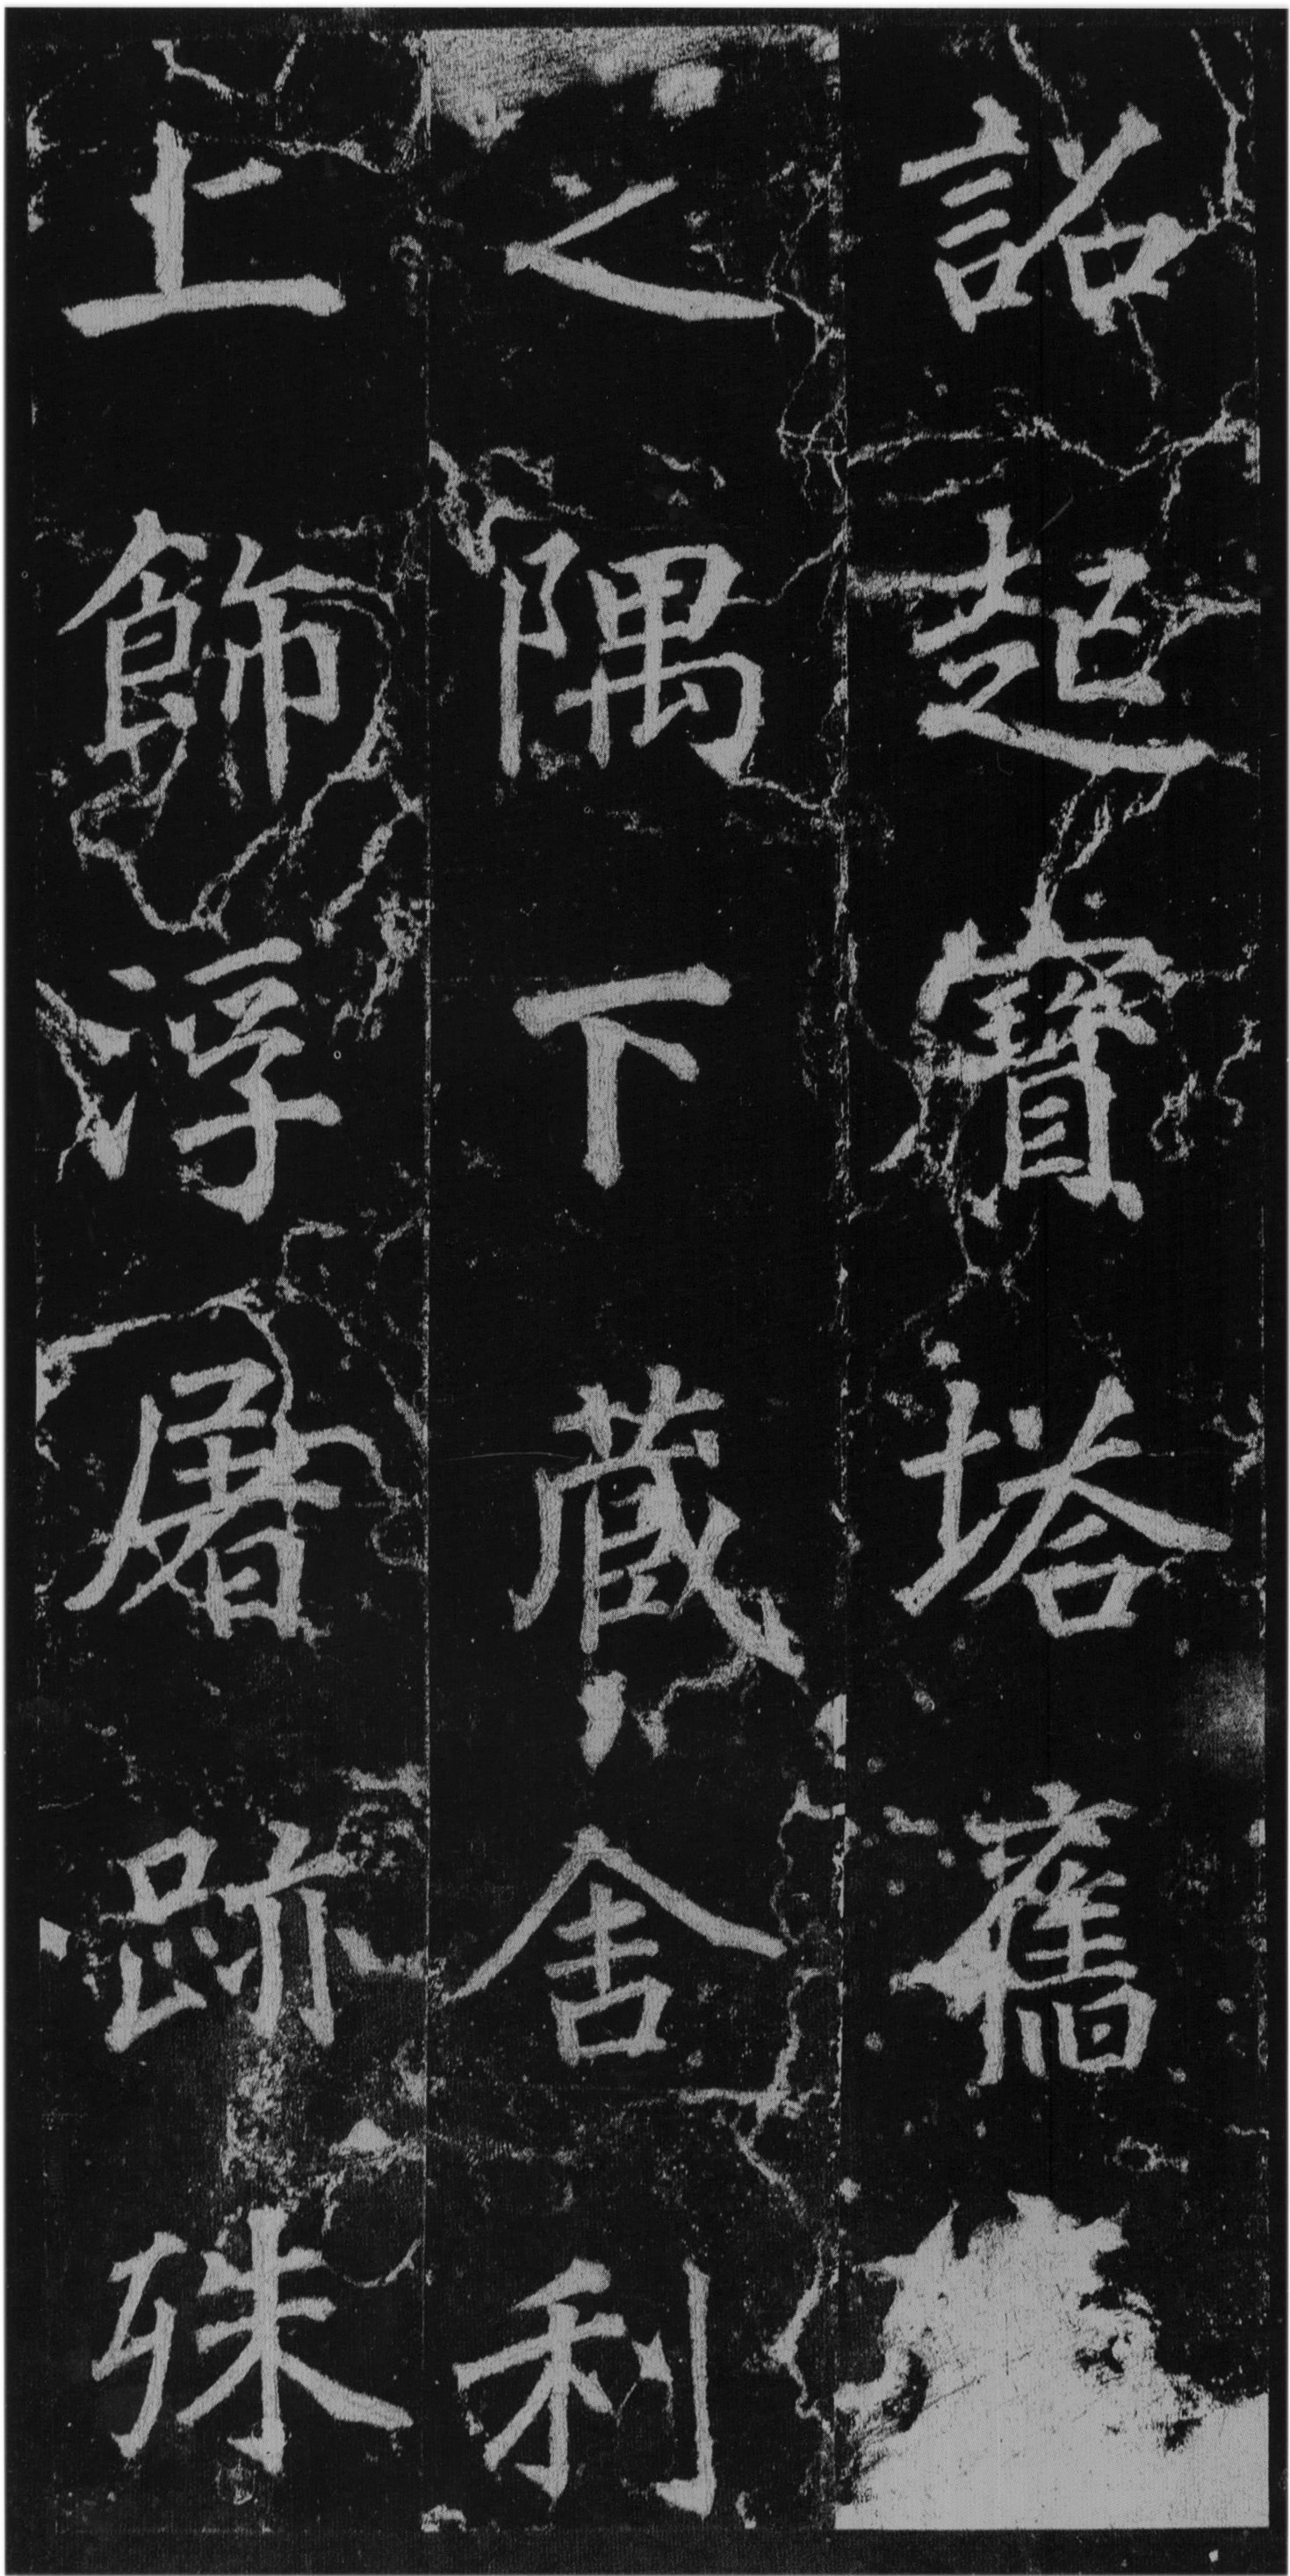 詔起寶塔舊
之隅下藏舍利
上飾浮屠跡殊